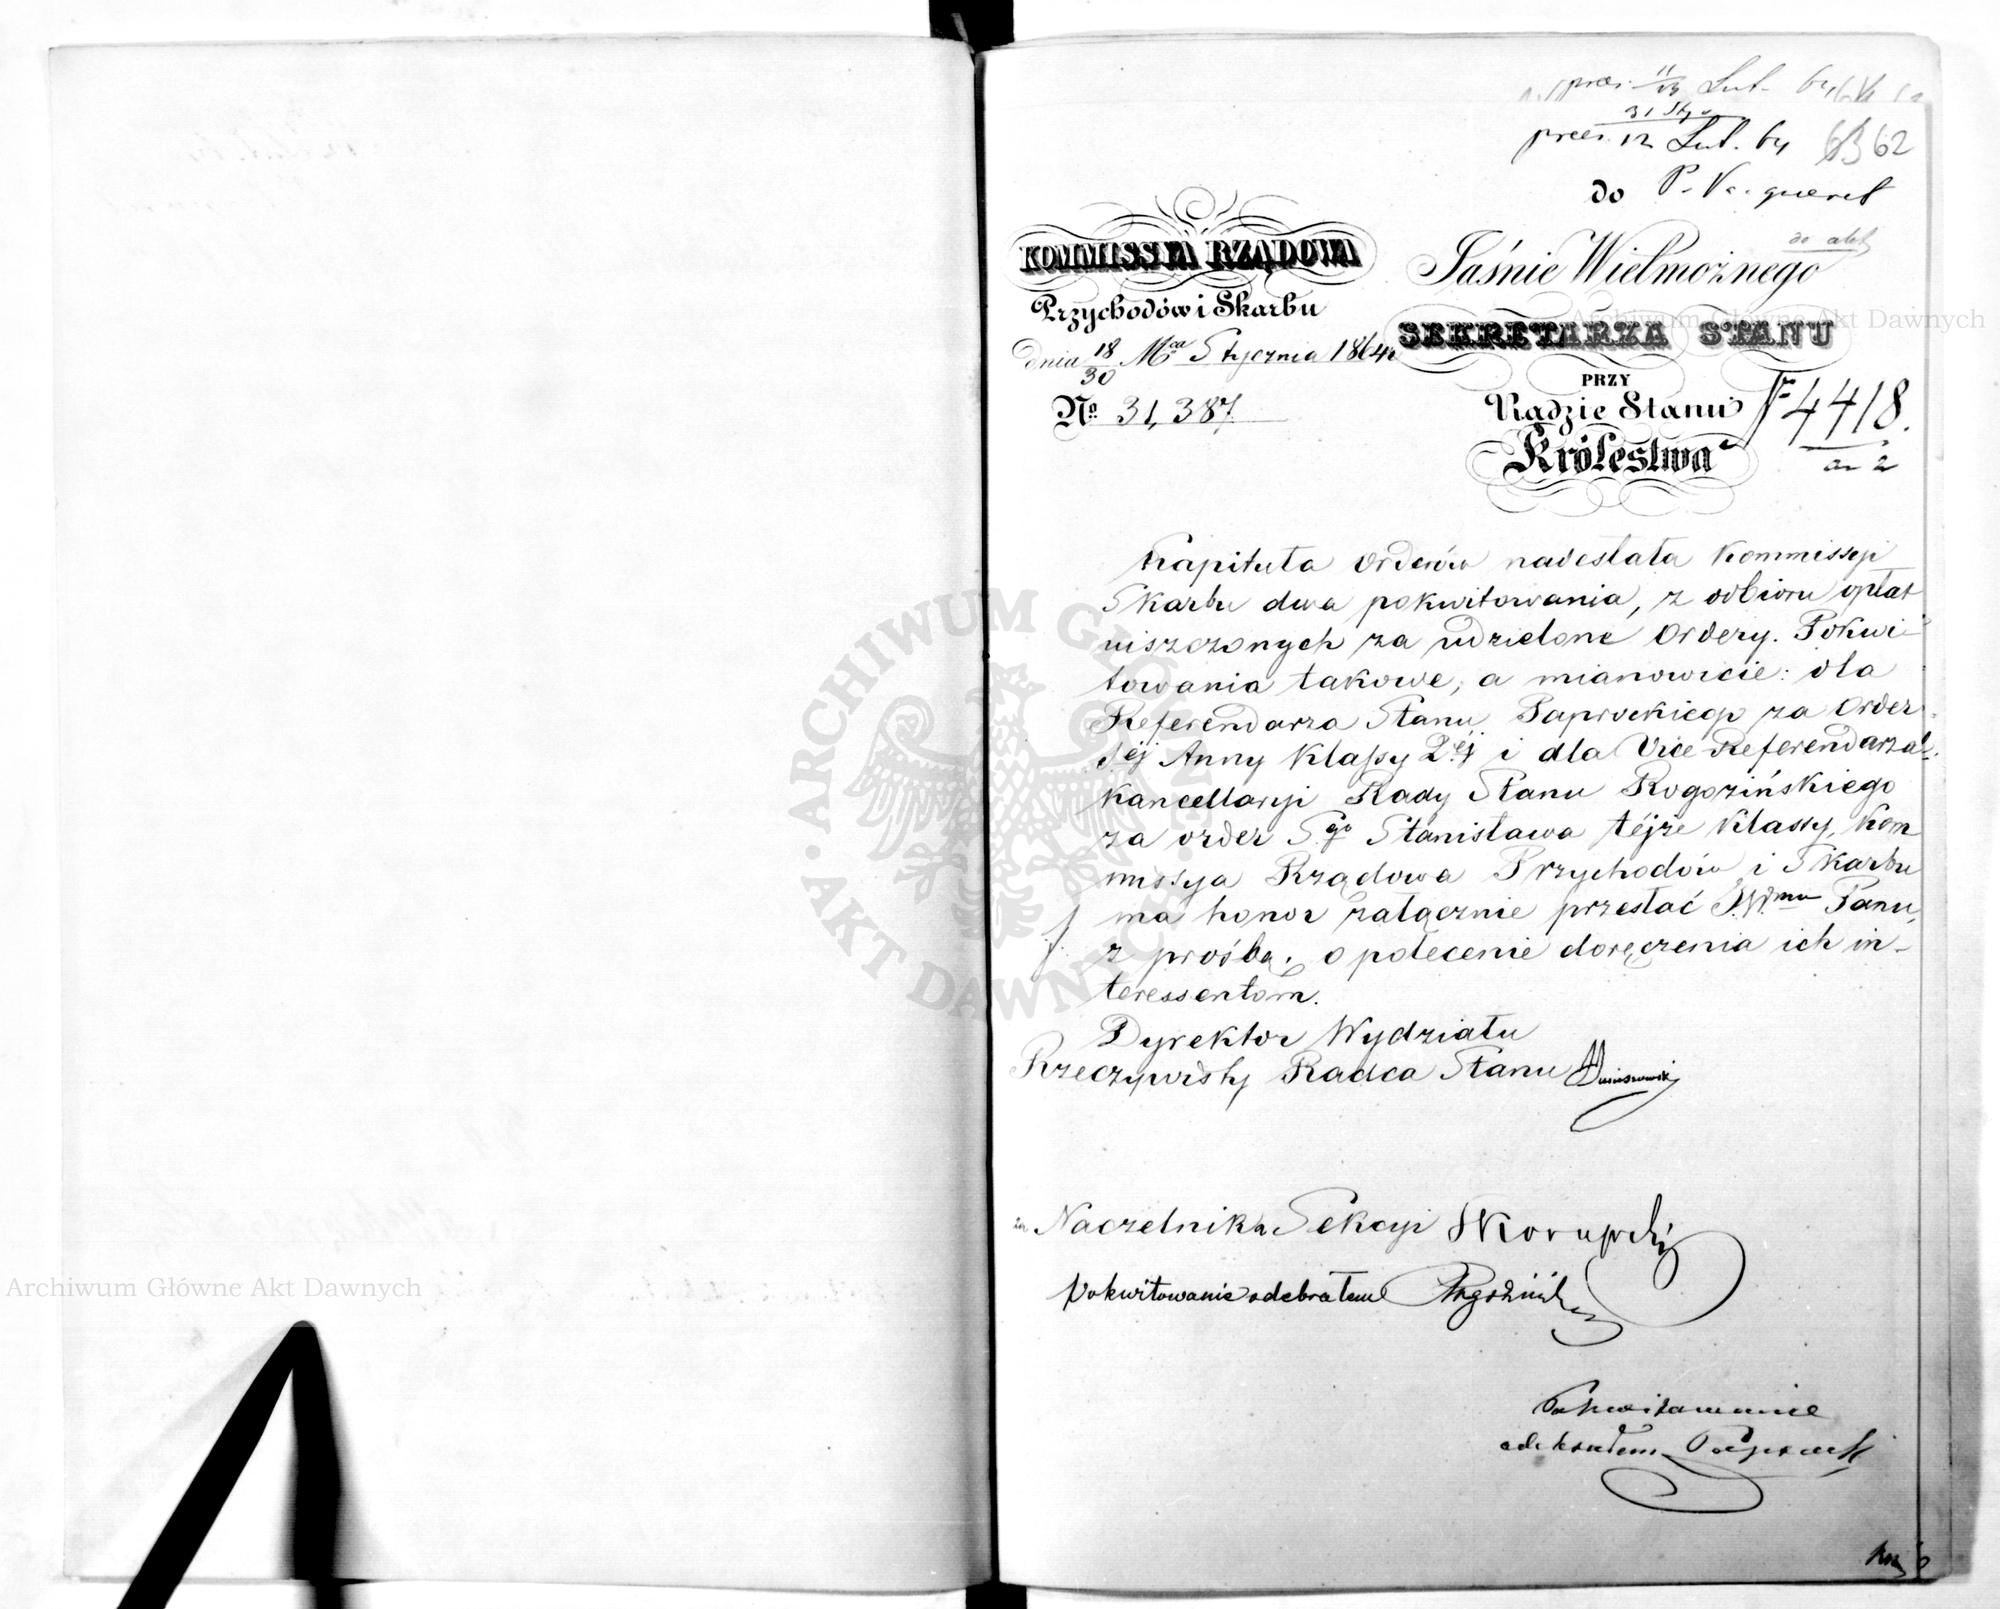 pres. 11/23 Lut. 64
pres. 31 Sty./12 Lut. 64 62
do P. Vaqueret
do akt
KOMMISSYA RZĄDOWA
Przychodów i Skarbu
dnia 18/30 Mca Stycznia 1864 r
No 31,387
Jaśnie Wielmożnego
SEKRETARZA STANU
PRZY
Radzie Stanu
Królestwa
4418.
an 2
Kapituła Orderów nadesłała Kommissyi
Skarbu dwa pokwitowania, z odbioru opłat
uiszczonych za udzielone Ordery. Pokwi-
towania takowe, a mianowicie: dla
Referendarza Stanu Paprockiego za Order
Sej Anny Klassy 2ej i dla Vice Referendarza
Kancellaryi Rady Stanu Rogozińskiego
za order Sgo Stanisława téjże Klassy, Kom
missya Rządowa Przychodów i Skarbu
ma honor załącznie przesłać J.W.mu Panu,
z prośbą, o polecenie doręczenia ich in-
teressentom.
Dyrektor Wydziału
Rzeczywisty Radca Stanu
za Naczelnika Sekcyi Skorupski
Pokwitowanie odebrałem Rogoziński
Pokwitowanie
odebrałem Paprocki
Archiwum Główne Akt Dawnych
Archiwum Główne Akt Dawnych
ARCHIWUM GŁÓWNE · AKT DAWNYCH ·